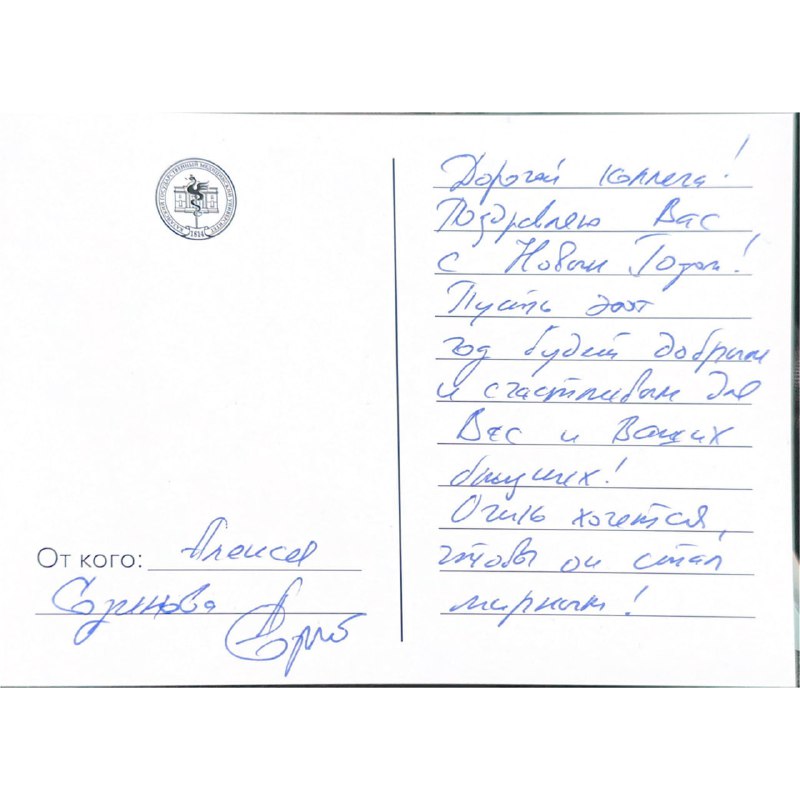 КАЗАНСКИЙ ГОСУДАРСТВЕННЫЙ МЕДИЦИНСКИЙ УНИВЕРСИТЕТ
1814
От кого: Алексея
Созинова
Дорогой коллега!
Поздравляю Вас
с Новым Годом!
Пусть этот
год будет добрым
и счастливым для
Вас и Ваших
близких!
Очень хочется,
чтобы он стал
мирным!